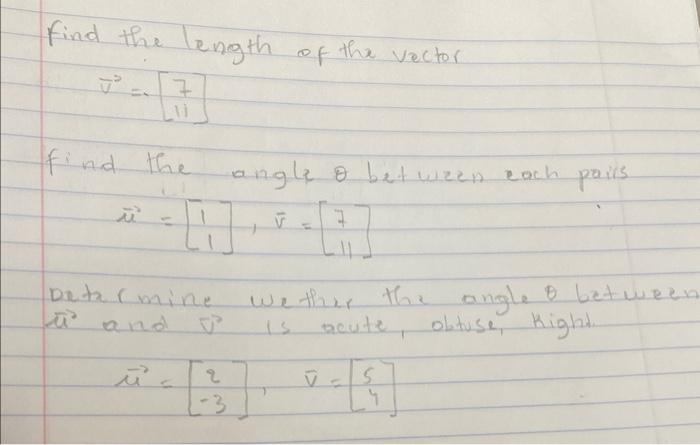 find the length of the vector
v⃗ = [7 11]
find the angle θ between each pairs
u⃗ = [1 1], v̄ = [7 11]
Determine wether the angle θ between
u⃗ and v⃗ is acute, obtuse, Right.
u⃗ = [2 -3], v̄ = [5 4]